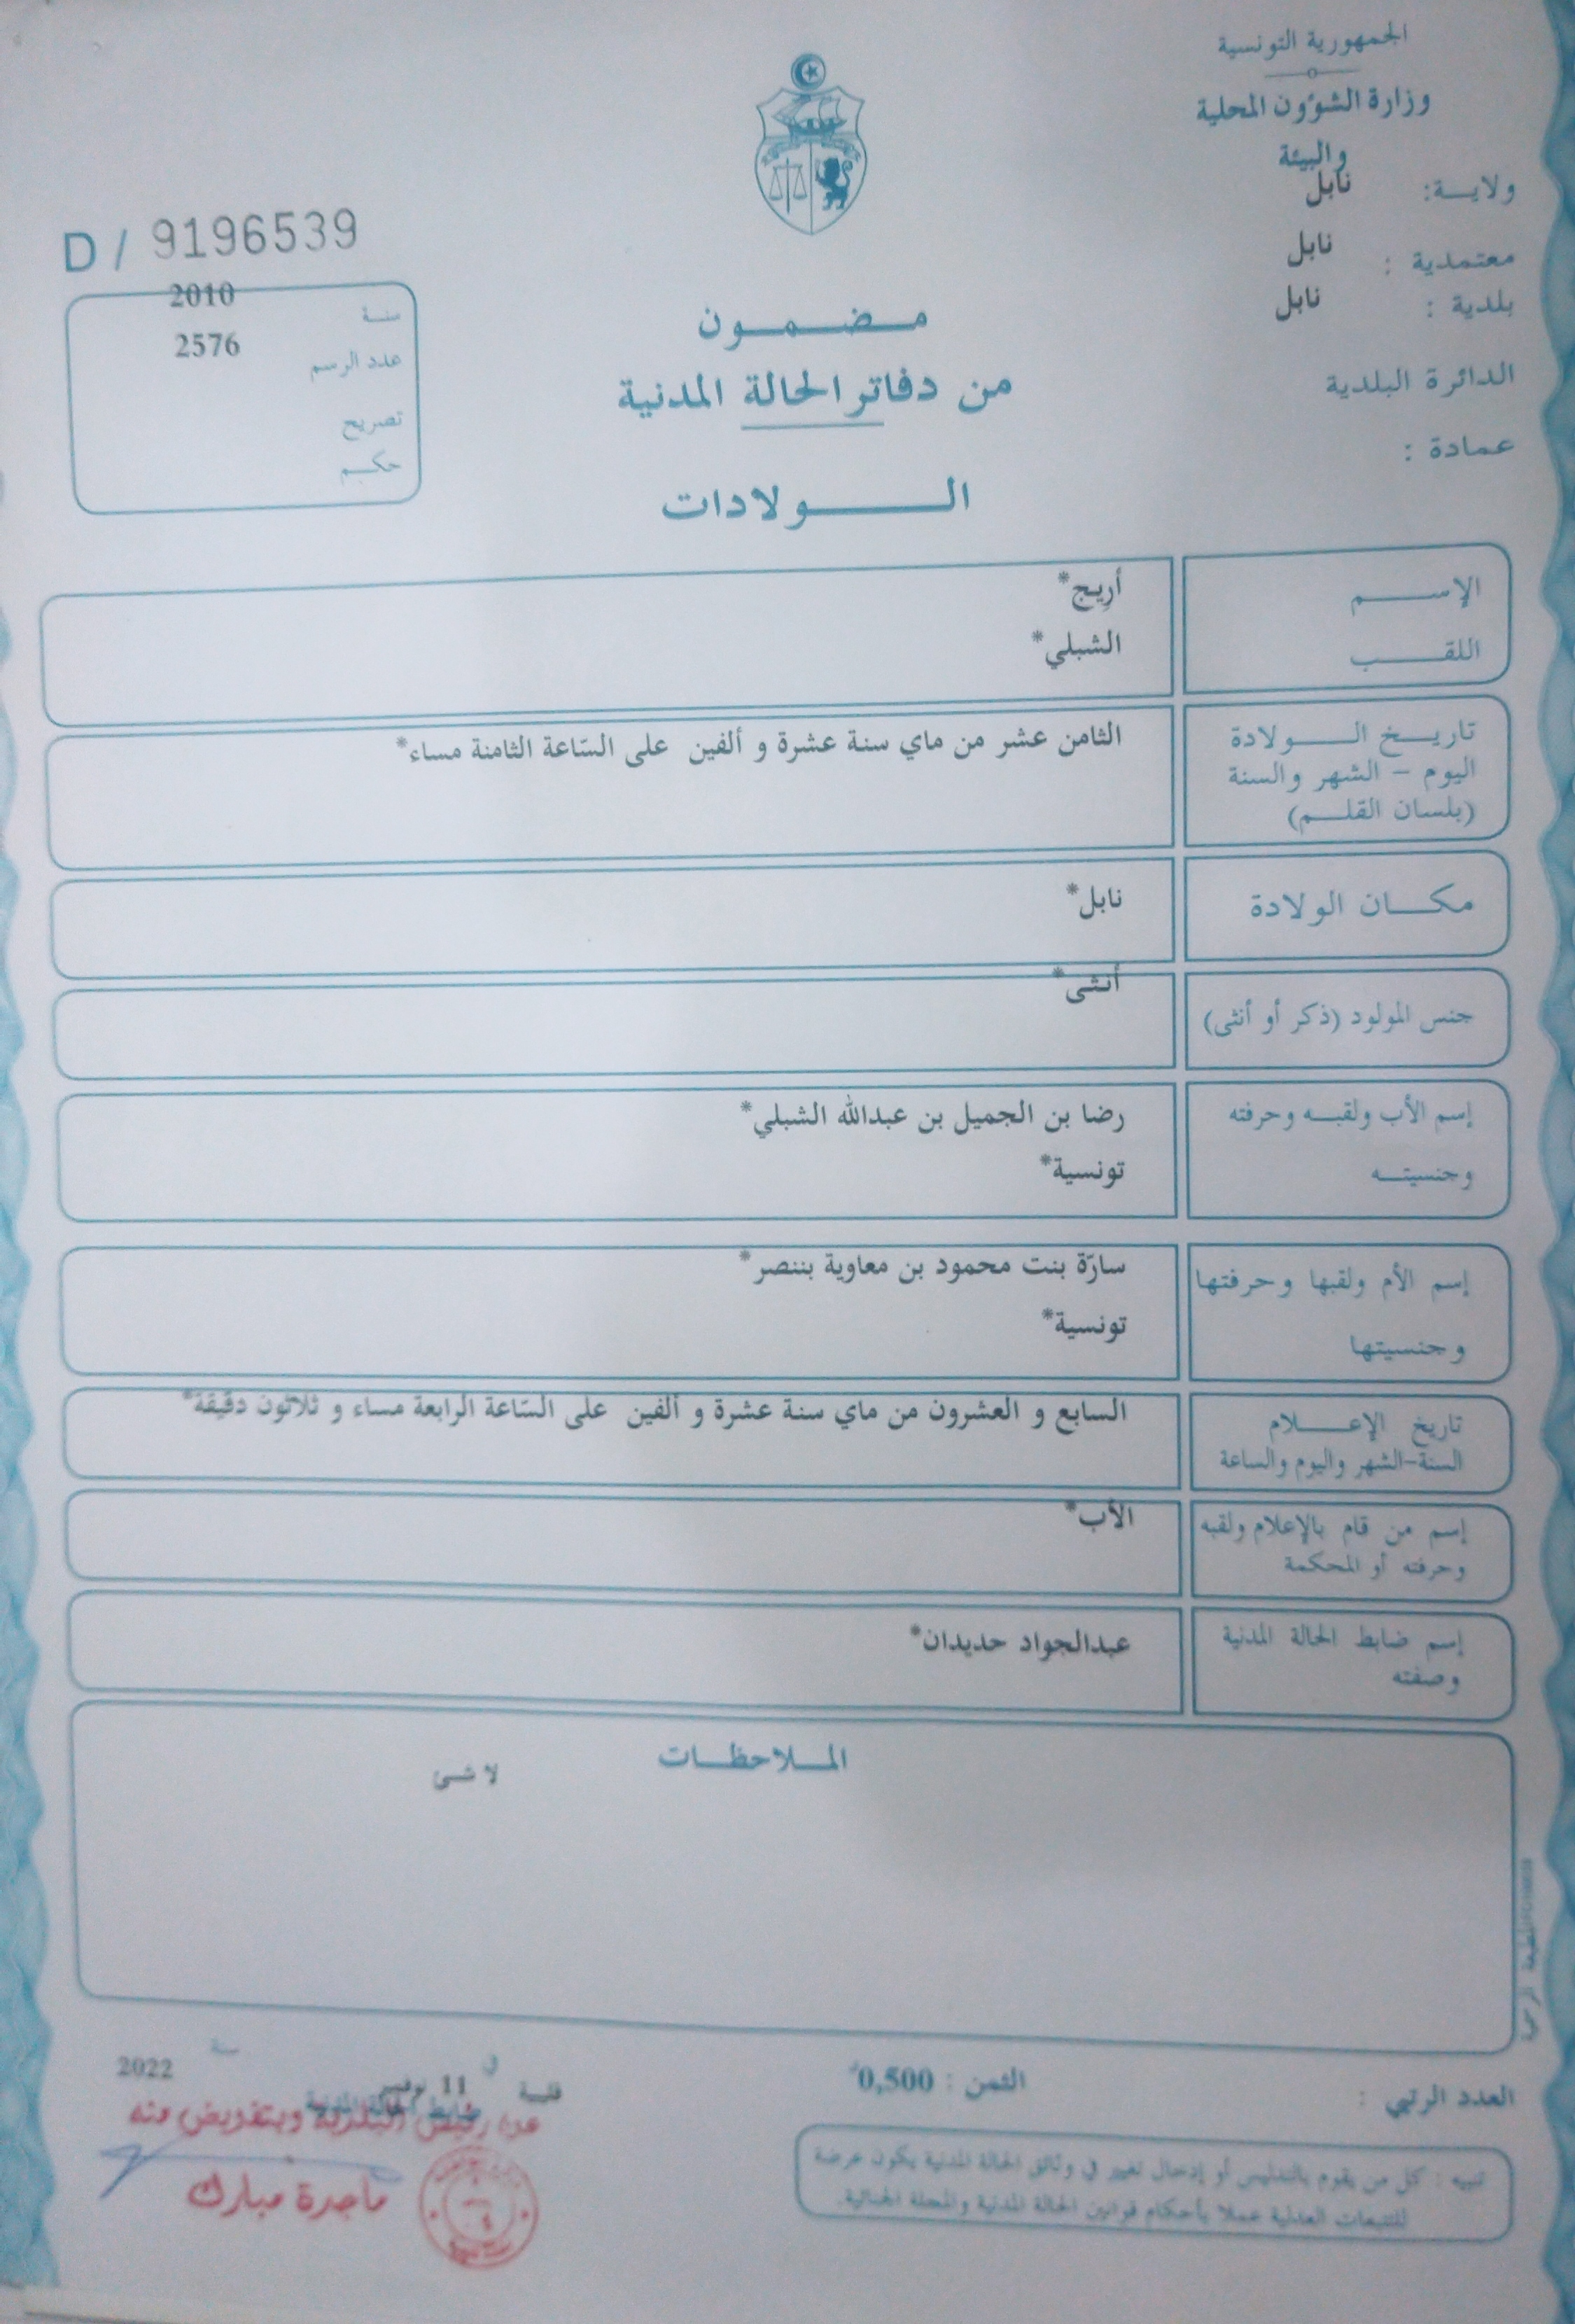 الجمهورية التونسية
وزارة الشؤون المحلية
والبيئة
ولايـــة: نابل
معتمدية : نابل
بلدية : نابل
الدائرة البلدية
عمادة :
D / 9196539
سنـة 2010
عدد الرسم 2576
تصريح
حكـم
مـضـمـون
من دفاتر الحالة المدنية
الـولادات
الإســـم أريج*
اللقـــب الشبلي*
تاريـخ الـــولادة الثامن عشر من ماي سنة عشرة و ألفين على السّاعة الثامنة مساء*
اليوم - الشهر والسنة
(بلسان القلـم)
مكـــان الولادة نابل*
جنس المولود (ذكر أو أنثى) أنثى*
إسم الأب ولقبـه وحرفته رضا بن الجميل بن عبدالله الشبلي*
وجنسيتـه تونسية*
إسم الأم ولقبها وحرفتها سارّة بنت محمود بن معاوية بننصر*
وجنسيتها تونسية*
تاريخ الإعـــلام السابع و العشرون من ماي سنة عشرة و ألفين على السّاعة الرابعة مساء و ثلاثون دقيقة*
السنة-الشهر واليوم والساعة
إسم من قام بالإعلام ولقبه الأب*
وحرفته أو المحكمة
إسم ضابط الحالة المدنية عبدالجواد حديدان*
وصفته
المـلاحظـات
لا شئ
العدد الرتبي :
الثمن : 0,500
في 11 نوفمبر سنة 2022
ضابط الحالة المدنية
رئيس البلدية وبتفويض منه
ماجدة مبارك
تنبيه : كل من يقوم بالتدليس أو إدخال تغيير في وثائق الحالة المدنية يكون عرضة
للتتبعات العدلية عملا بأحكام قوانين الحالة المدنية والمجلة الجنائية.